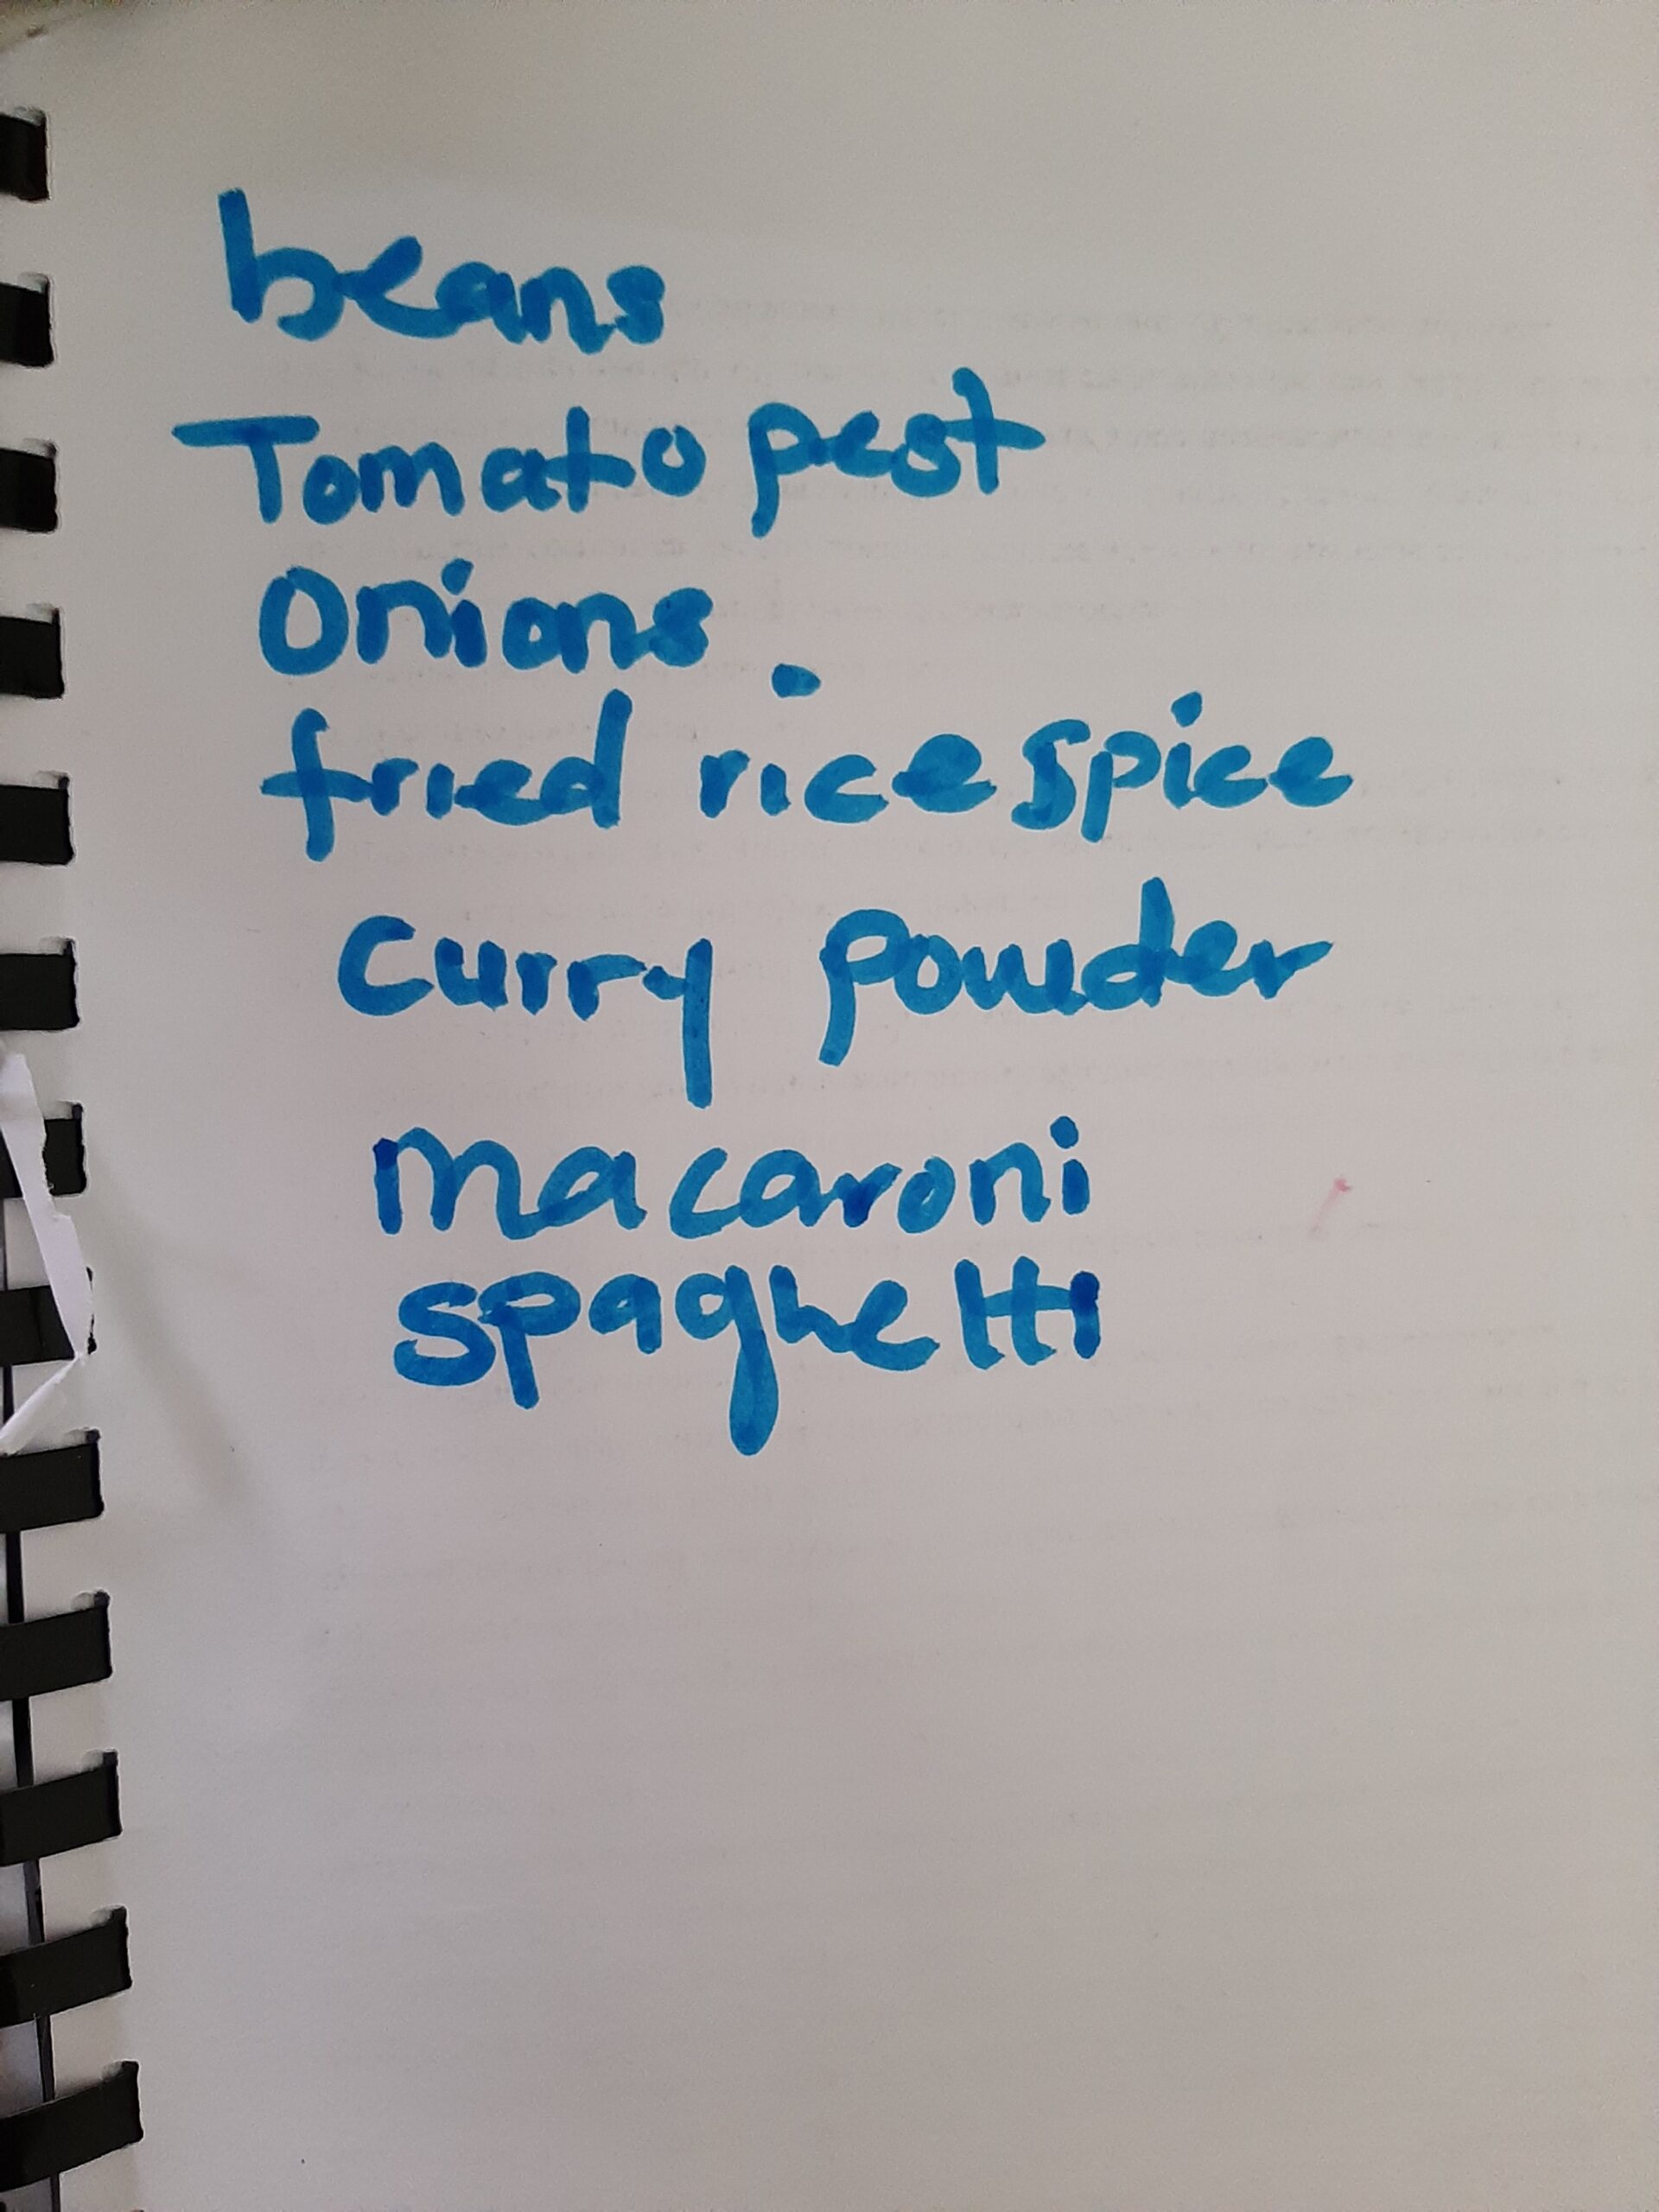 beans
Tomato pest
Onions
fried rice spice
Curry powder
macaroni
spaghetti